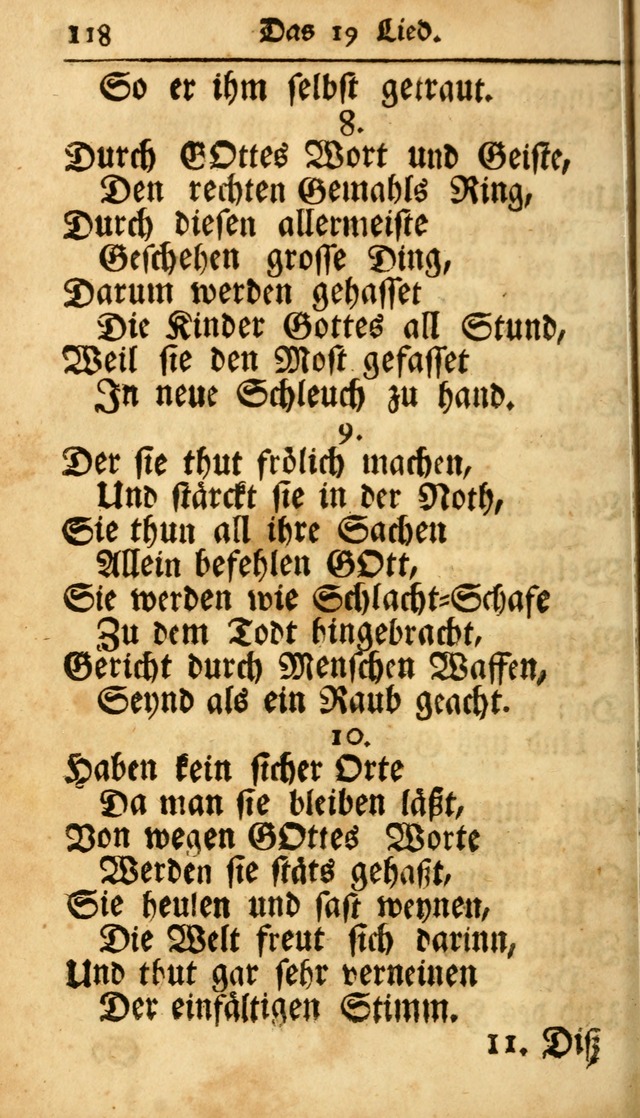 118 Das 19 Lied.
So er ihm selbst getraut.
8.
Durch GOttes Wort und Geiste,
Den rechten Gemahls Ring,
Durch diesen allermeiste
Geschehen grosse Ding,
Darum werden gehasset
Die Kinder Gottes all Stund,
Weil sie den Most gefasset
In neue Schleuch zu hand.
9.
Der sie thut frölich machen,
Und stärckt sie in der Noth,
Sie thun all ihre Sachen
Allein befehlen GOtt,
Sie werden wie Schlacht-Schafe
Zu dem Todt hingebracht,
Gericht durch Menschen Waffen,
Seynd als ein Raub geacht.
10.
Haben kein sicher Orte
Da man sie bleiben läßt,
Von wegen GOttes Worte
Werden sie stäts gehaßt,
Sie heulen und fast weynen,
Die Welt freut sich darinn,
Und thut gar sehr verneinen
Der einfältigen Stimm.
11. Diß